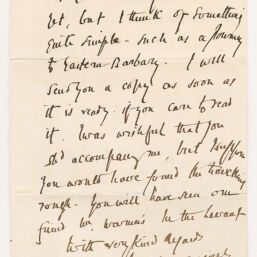 but I think of something
quite simple - such as a Journey
to Eastern Barbary. I will
send you a copy as soon as
it is ready - if you care to read
it. I was wishful that you
shd accompany me, but
you would have found the travelling
rough - You will have seen our
friend Mr.
with very kind regards